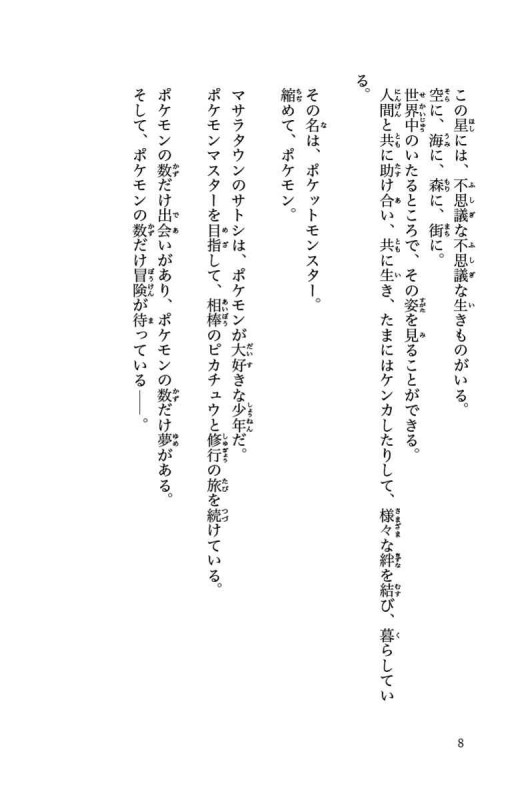 この星には、不思議な不思議な生きものがいる。
空に、海に、森に、街に。
世界中のいたるところで、その姿を見ることができる。
人間と共に助け合い、共に生き、たまにはケンカしたりして、様々な絆を結び、暮らしてい
る。
その名は、ポケットモンスター。
縮めて、ポケモン。
マサラタウンのサトシは、ポケモンが大好きな少年だ。
ポケモンマスターを目指して、相棒のピカチュウと修行の旅を続けている。
ポケモンの数だけ出会いがあり、ポケモンの数だけ夢がある。
そして、ポケモンの数だけ冒険が待っている――。
8